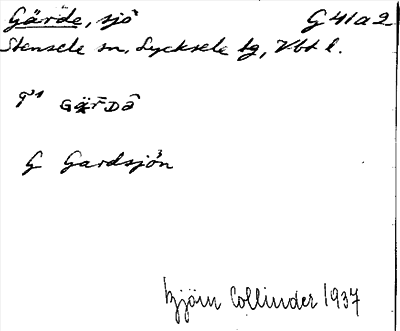 Gärde, sjö G 41 a 2
Stensele sn, Lycksele tg, Vbt l.
GäRDå
G Gardsjön
Björn Collinder 1937